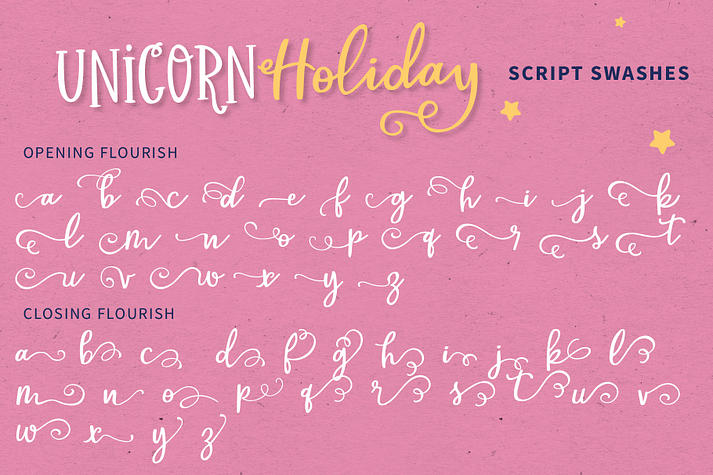 UNiCORN Holiday
SCRIPT SWASHES
OPENING FLOURISH
a b c d e f g h i j k
l m n o p q r s t
u v w x y z
CLOSING FLOURISH
a b c d e f g h i j k l
m n o p q r s t u v
w x y z